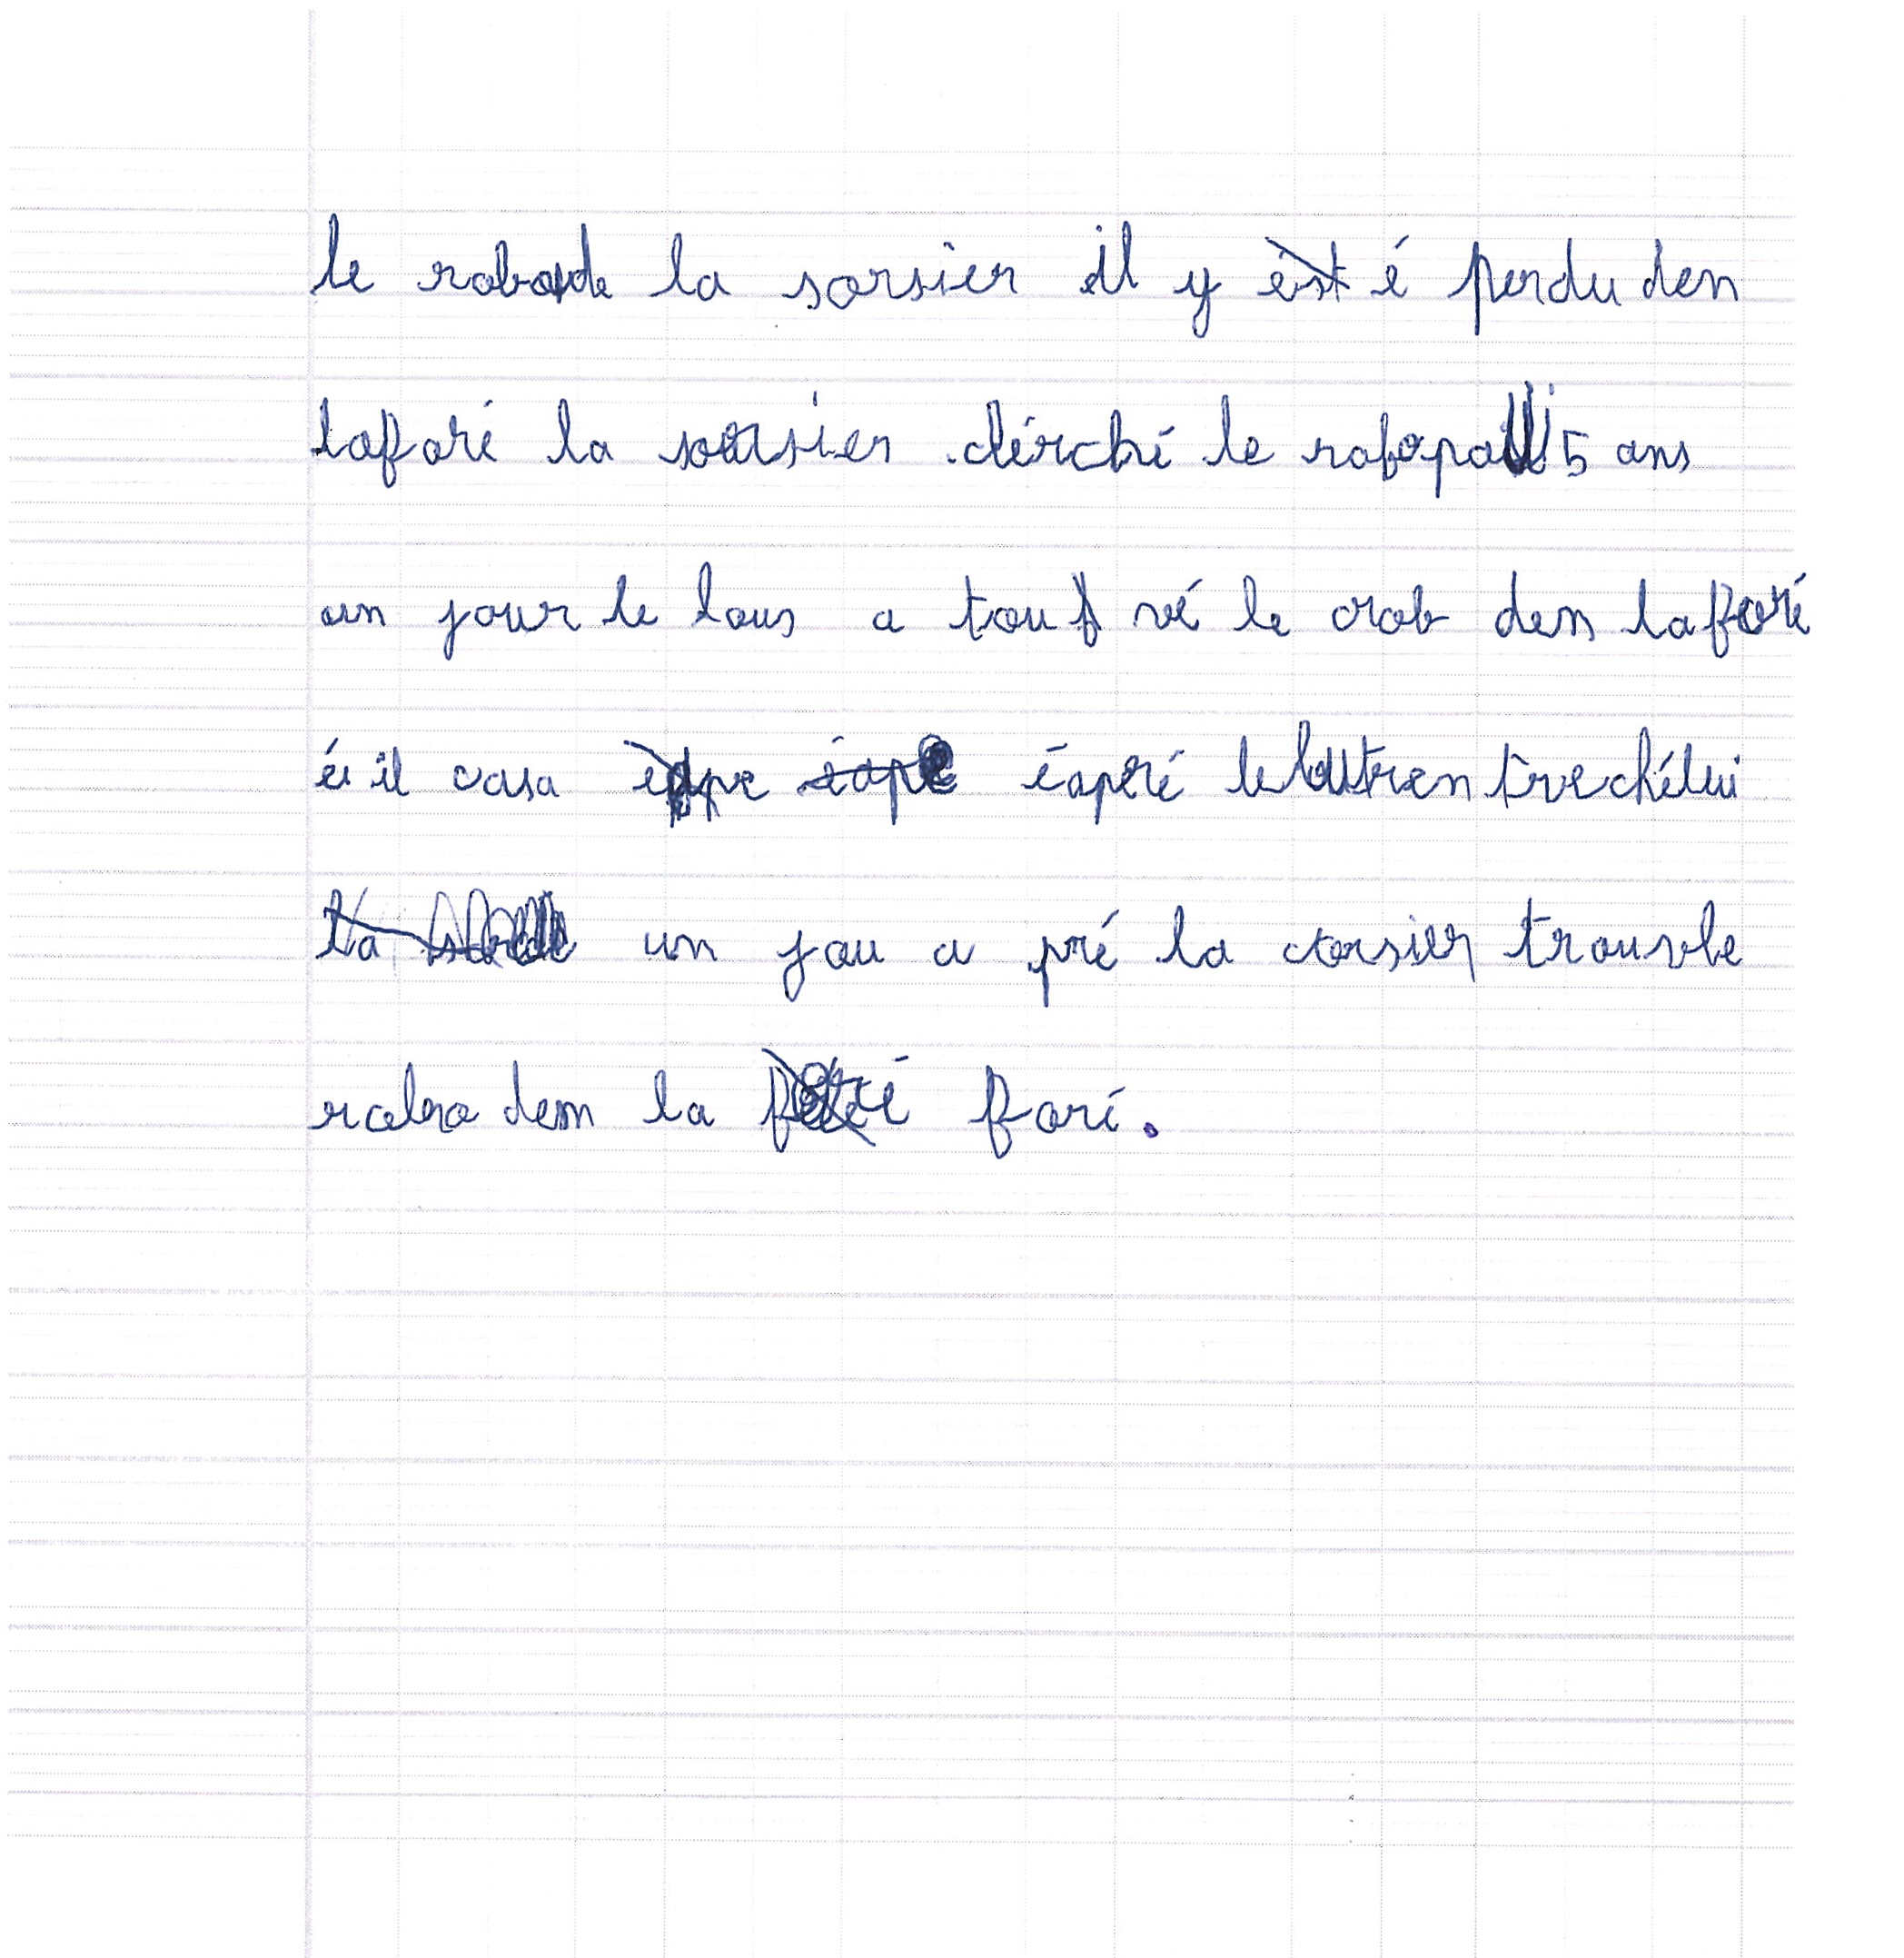 le robode la sorsier il y é perdu den
laforé la sorsier chérché le robopa 5 ans
un jour le lous a trouvé le rob den laforé
é il casa éapré le lous ren tre chélui
un jou a pré la sorsier trouvle
robo den la foré.